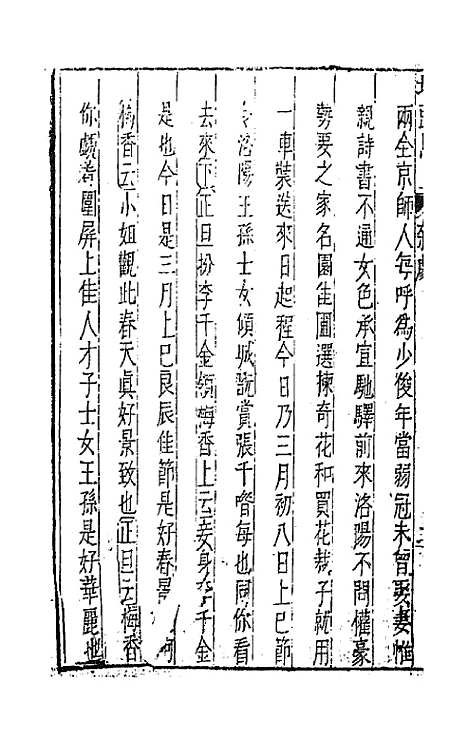 兩全京師人每呼爲少俊年當弱冠未曾娶妻惟
親詩書不通女色承宣馳驛前來洛陽不問權豪
勢要之家名園佳圃選揀奇花和買花栽子就用
一車裝送來日起程今日乃三月初八日上巳節
洛陽王孫士女傾城翫賞張千偺每也同你看
去來下正旦扮李千金領梅香上云妾身李千金
是也今日是三月上巳良辰佳節是好春景
梅香云小姐觀此春天真好景致也正旦云梅香
你覷着圍屏上佳人才子士女王孫是好華麗也